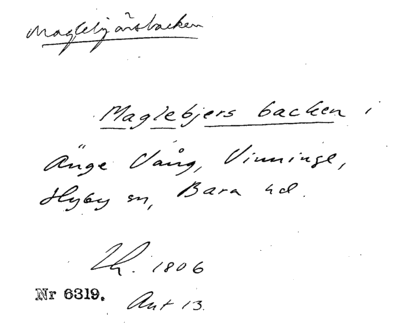 Maglebjärsbacken
Maglebjers backen i
Änge Vång, Vinninge,
Hyby sn, Bara hd.
Lh. 1806
Nr 6319. Akt 13.